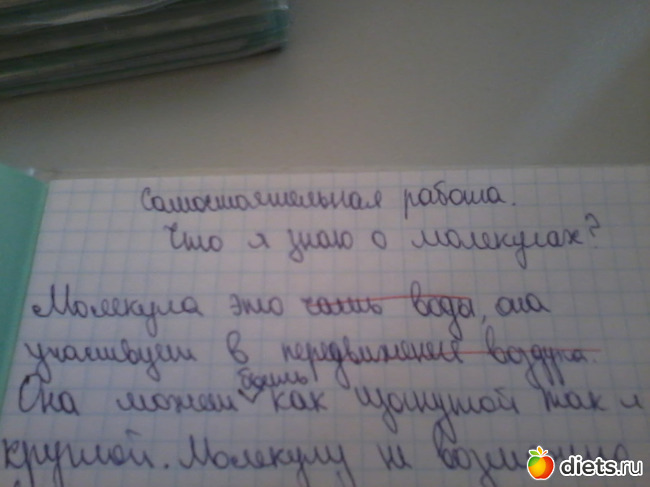 Самостоятельная работа.
Что я знаю о молекулах?
Молекула это часть воды, она
участвует в передвижение воздуха.
быть
Она может как так и
круглой. Молекулу не возможно
diets.ru